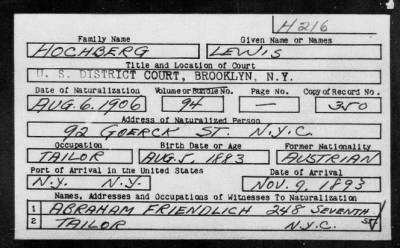 H216
Family Name Given Name or Names
HOCHBERG LEWIS
Title and Location of Court
U. S. DISTRICT COURT, BROOKLYN, N.Y.
Date of Naturalization Volume or Bundle No. Page No. Copy of Record No.
AUG. 6. 1906 94 — 350
Address of Naturalized Person
92 GOERCK ST. N.Y.C.
Occupation Birth Date or Age Former Nationality
TAILOR AUG. 5, 1883 AUSTRIAN
Port of Arrival in the United States Date of Arrival
N.Y. N.Y. NOV. 9, 1893
Names, Addresses and Occupations of Witnesses To Naturalization
1 ABRAHAM FRIENDLICH 248 SEVENTH ST
2 TAILOR N.Y.C.